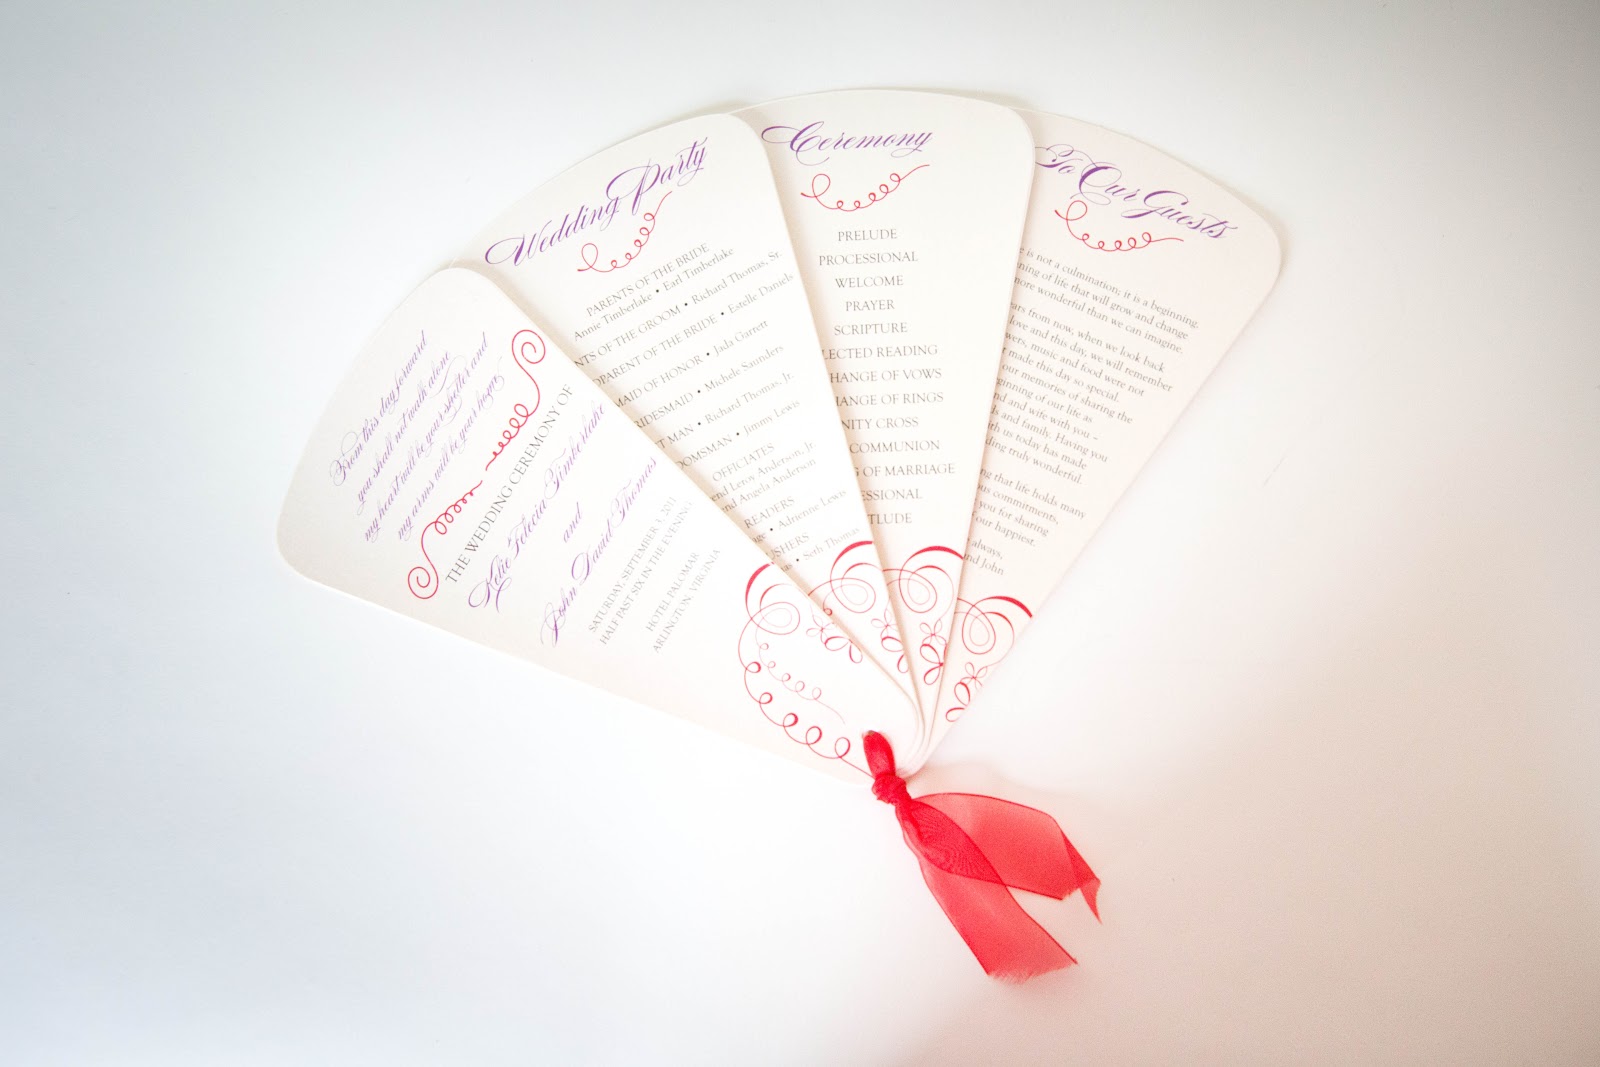 From this day forward
you shall not walk alone
my heart will be your shelter and
my arms will be your home
THE WEDDING CEREMONY OF
Katie Felecia Timberlake
and
John David Thomas
SATURDAY, SEPTEMBER 3, 2011
HALF PAST SIX IN THE EVENING
HOTEL PALOMAR
ARLINGTON, VIRGINIA
Wedding Party
PARENTS OF THE BRIDE
Annie Timberlake • Earl Timberlake
NTS OF THE GROOM • Richard Thomas, Sr.
DPARENT OF THE BRIDE • Estelle Daniels
MAID OF HONOR • Jada Garrett
RIDESMAID • Michele Saunders
T MAN • Richard Thomas, Jr.
OOMSMAN • Jimmy Lewis
OFFICIATES
end Leroy Anderson, Jr.
nd Angela Anderson
READERS
ge • Adrienne Lewis
USHERS
as • Seth Thomas
Ceremony
PRELUDE
PROCESSIONAL
WELCOME
PRAYER
SCRIPTURE
LECTED READING
HANGE OF VOWS
HANGE OF RINGS
NITY CROSS
COMMUNION
G OF MARRIAGE
ESSIONAL
TLUDE
To Our Guests
e is not a culmination; it is a beginning.
ning of life that will grow and change
more wonderful than we can imagine.
ars from now, when we look back
love and this day, we will remember
wers, music and food were not
t made this day so special.
our memories of sharing the
ginning of our life as
nd and wife with you –
ds and family. Having you
th us today has made
ding truly wonderful.
ng that life holds many
ous commitments,
you for sharing
f our happiest.
always,
nd John